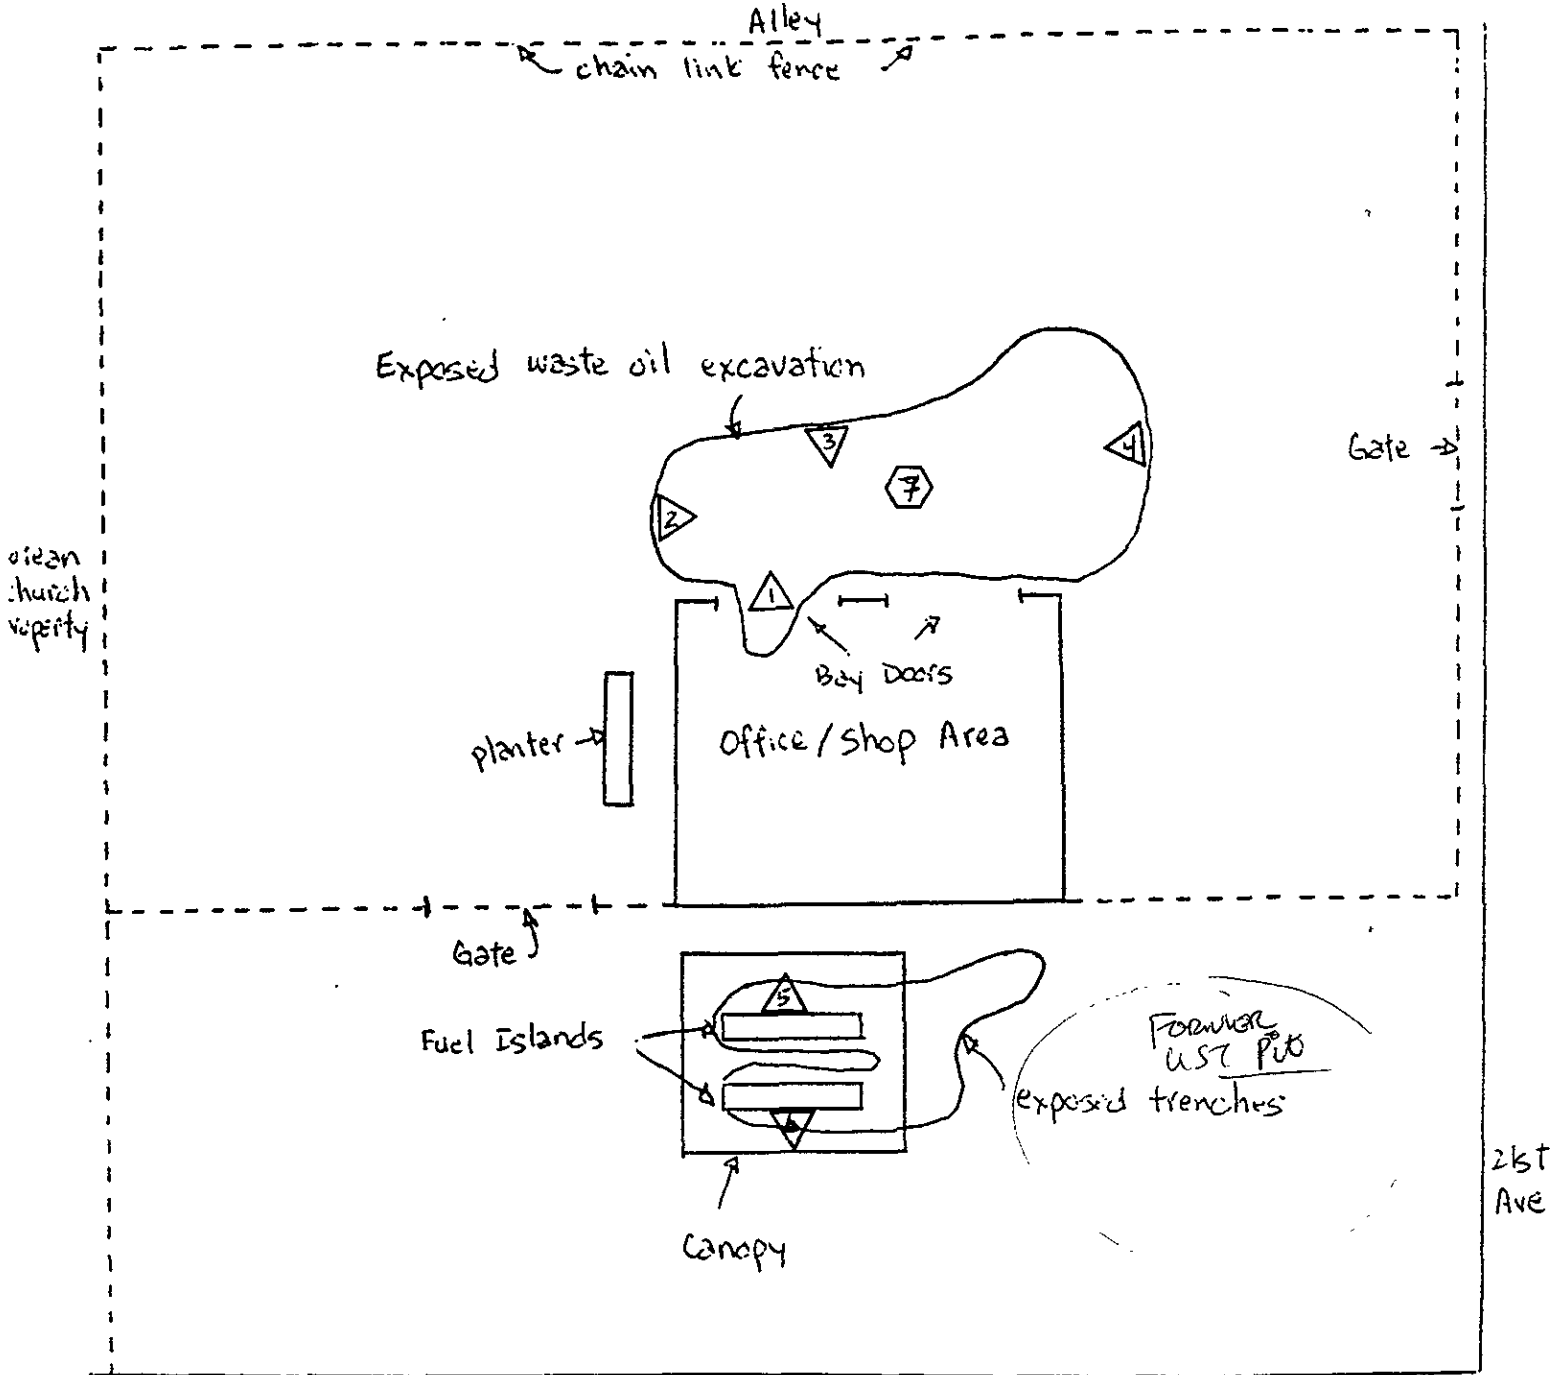 Alley
chain link fence
Exposed waste oil excavation
3
4
Gate
7
2
1
Bay Doors
planter
Office/Shop Area
Gate
5
Fuel Islands
Former
UST Pit
exposed trenches
6
21st
Ave
Canopy